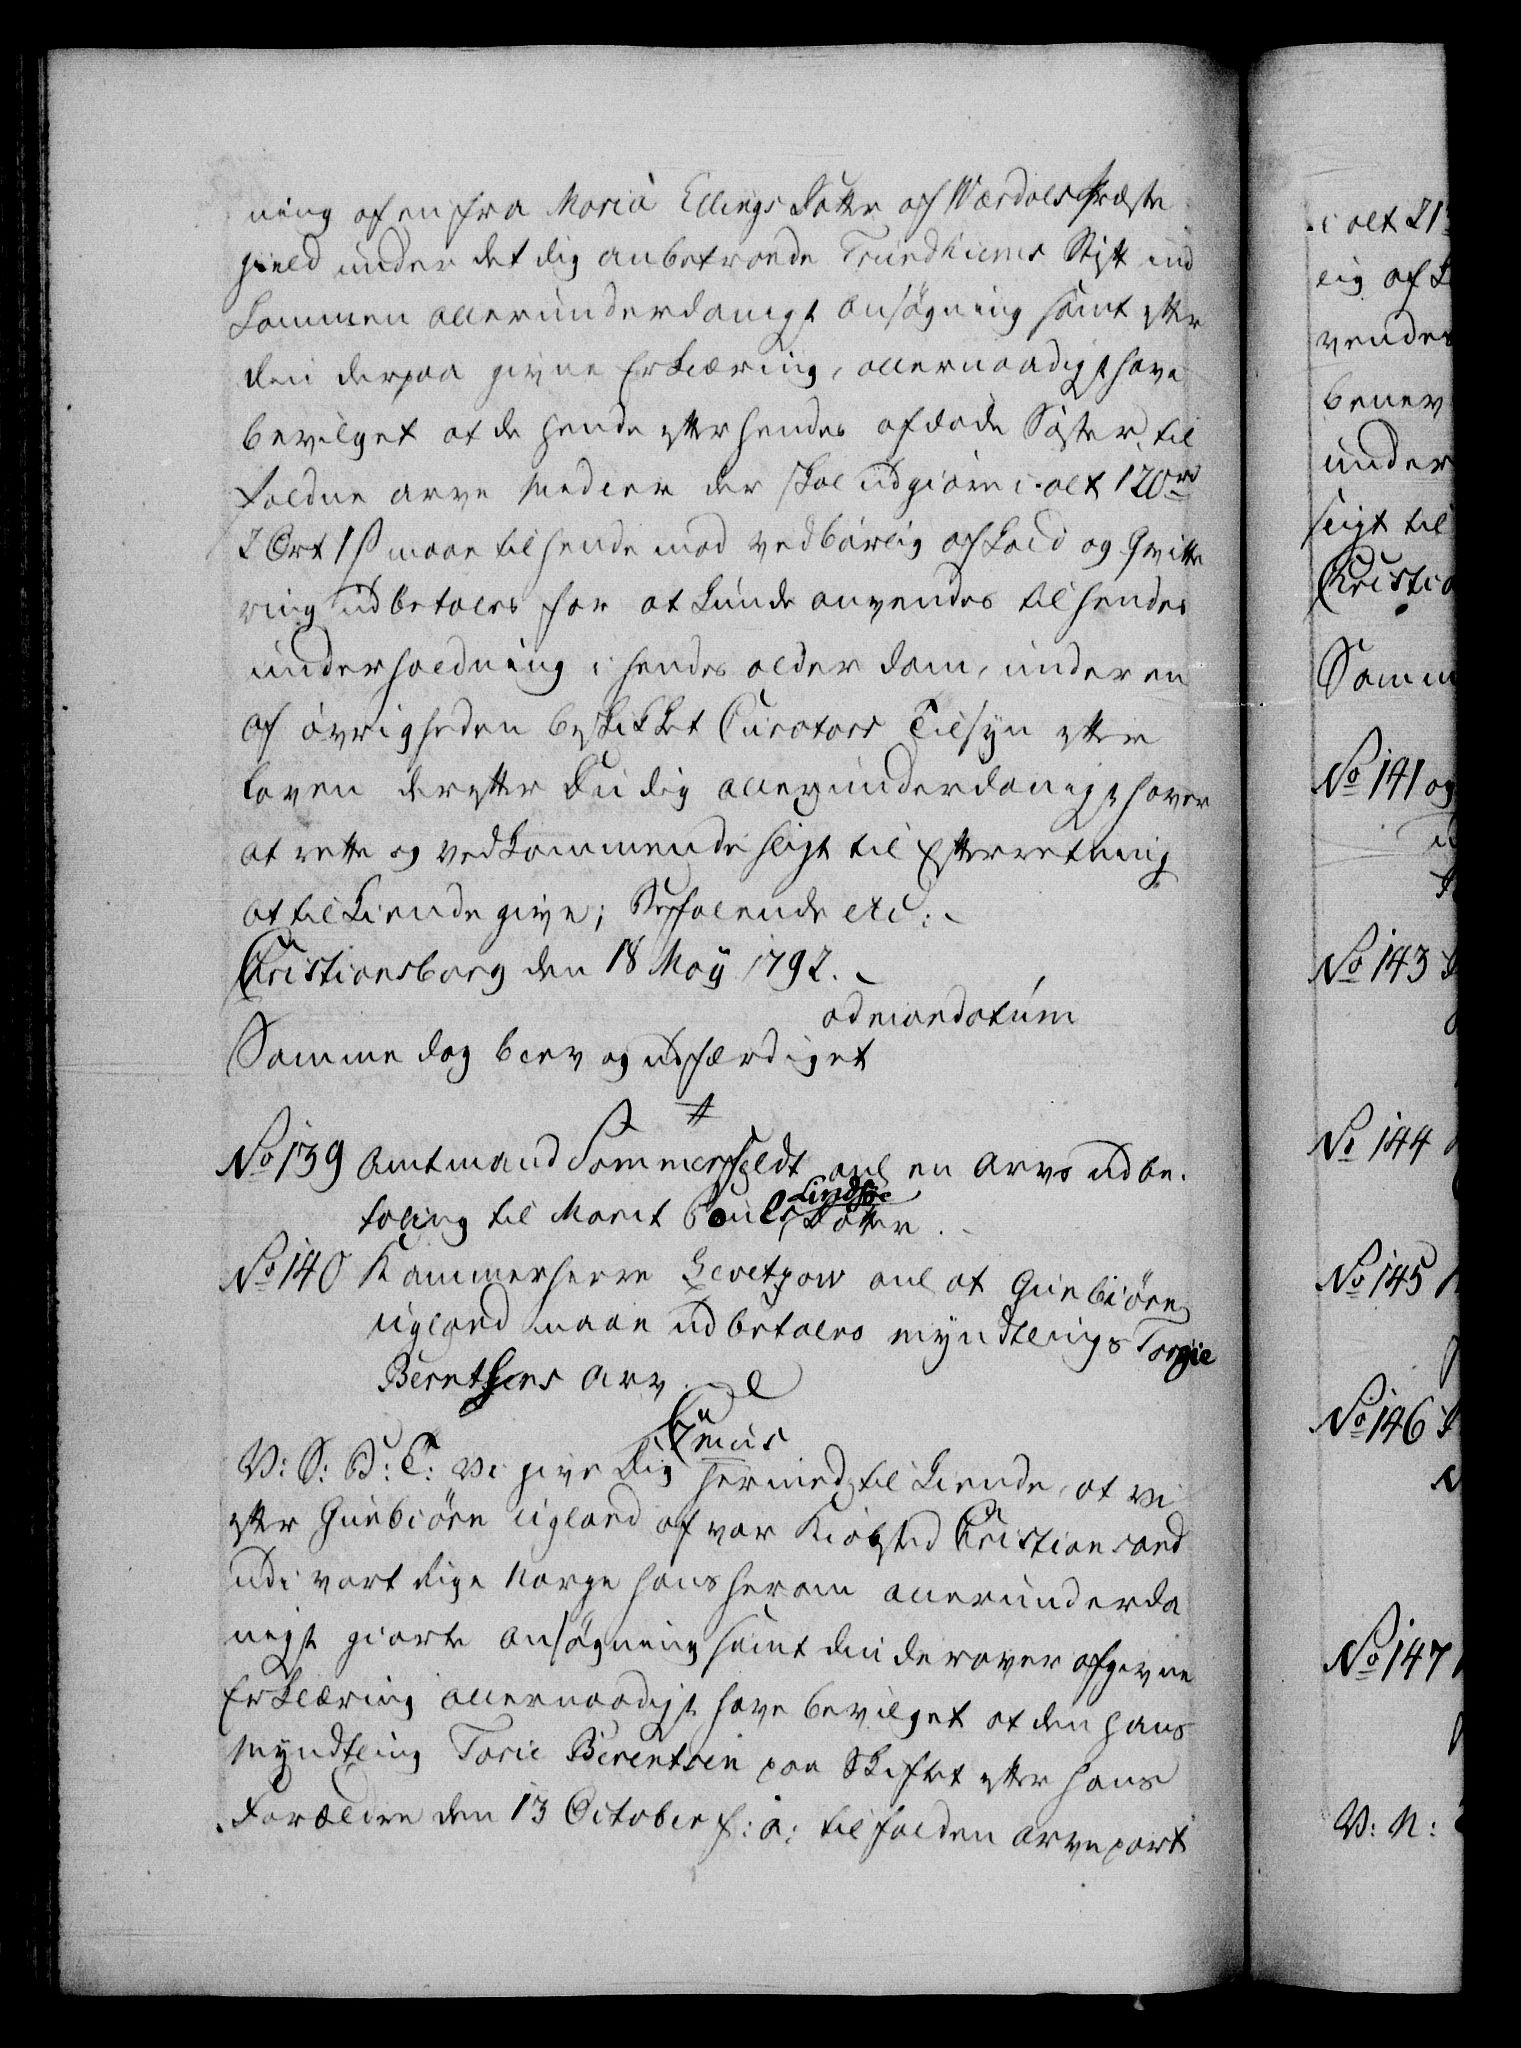 ning af en fra Maria Ellings Datter af Værdals Præste
gield under det dig anbetroede Trundhiems Stift ind
kommen allerunderdanigst Ansøgning samt efter
den derpaa givne Erklæring, allernaadigst have
bevilget at de hende efter hendes afdøde Søster til
faldne arve Medler der skal udgiøre i alt 120 rd
2 Ort 1 s maae til hende mod vedbørlig afkald og Qvitte
ring udbetales for at kunde anvendes til hendes
underholdning i hendes alderdom, under en
af øvrigheden beskikket Curators Tilsyn efter
loven derefter Du dig allerunderdanigst haver
at rette og vedkommende sligt til Efterretning
at tilkiende give; Befalende etc:
Christiansborg den 18 May 1792.
ad mandatum
Samme dag blev og udfærdiget
No 139 Amtmand Sommerfeldt anl en Arvs udbe.
taling til Marit Pouls Lindsøe Datter.
No 140 Kammerherre Levetzow anl at Gunbiørn
Ugland maae udbetales myndtlings Torgie
Berntsens Arv.
C7mus
V: S: B: T: Vi give Dig hermed tilkiende, at vi
efter Gunbiørn Ugland af vor Kiøbsted Christiansand
udi vort Rige Norge hans herom allerunderda
nigst giorte Ansøgning samt den derover afgivne
Erklæring allernaadigst have bevilget at den hans
Myndtling Torie Berentsen paa Skiftet efter hans
Forældre den 13 October f: a: tilfalden Arvepart
i alt 21
lig af
vendes
benev
under
sligt til
Christia
Samm
No 141 og
No 143
No 144
No 145
No 146
No 147
V: N: